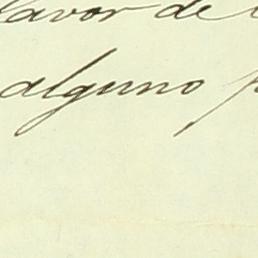 favor de
alguno p